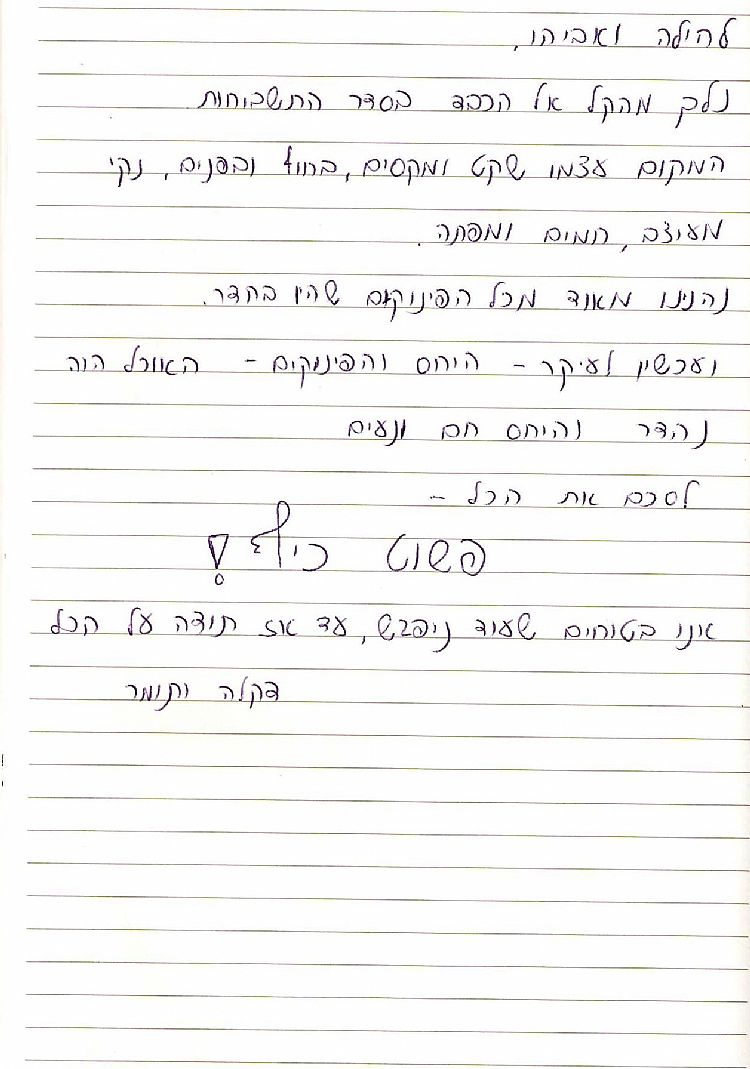 להילה ואביהו,
נלך מהקל אל הכבד בסדר התשבוחות
המקום עצמו שקט ומקסים, בחוץ ובפנים, נקי
מעוצב, תמים ומפתה.
נהנינו מאוד מכל הפינוקים שהיו בחדר.
ועכשיו לעיקר - היחס והפינוקים - האוכל היה
נהדר והיחס חם ונעים
לסכם את הכל -
פשוט כיף!
אנו בטוחים שעוד ניפגש, עד אז תודה על הכל
דקלה ותומר